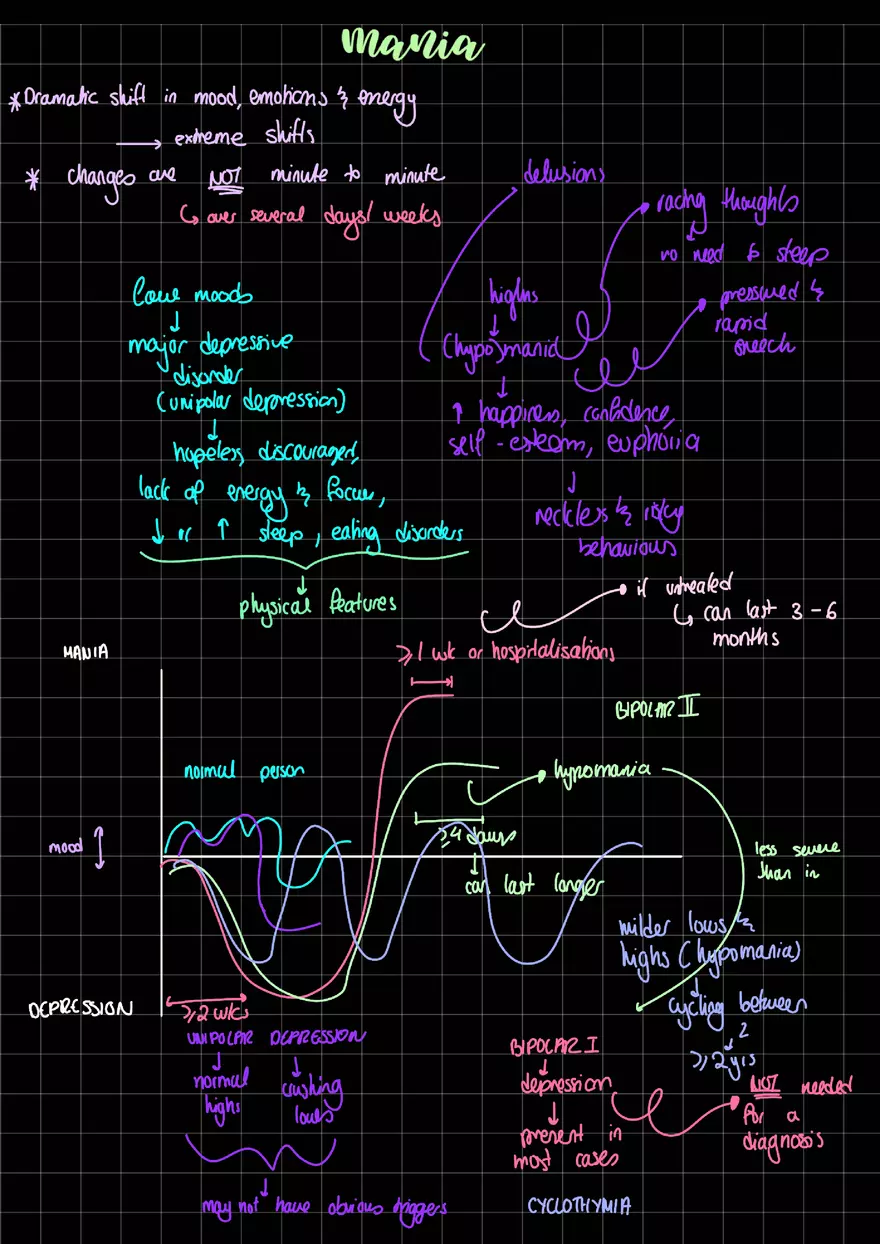 mania
*Dramatic shift in mood, emotions & energy
→ extreme shifts
* changes are NOT minute to minute
↳ over several days/ weeks
low moods
↓
major depressive
disorder
(unipolar depression)
↓
hopeless, discouraged,
lack of energy & focus,
↓ or ↑ sleep, eating disorders
↓
physical features
delusions
racing thoughts
↓
no need to sleep
highs
↓
(hypo)mania
pressured &
rapid
speech
↓
↑ happiness, confidence,
self-esteem, euphoria
↓
reckless & risky
behaviours
if untreated
↳ can last 3-6
months
≥1 wk or hospitalisations
MANIA
BIPOLAR II
normal person
hypomania
mood ↕
≥4 days
↓
can last longer
less severe
than in
milder lows &
highs (hypomania)
↓
cycling between
2
↓
≥2yrs
DEPRESSION
≥2 wks
UNIPOLAR DEPRESSION
↓ ↓
normal crushing
highs lows
↓
may not have obvious triggers
BIPOLAR I
↓
depression
↓
present in
most cases
NOT needed
for a
diagnosis
CYCLOTHYMIA